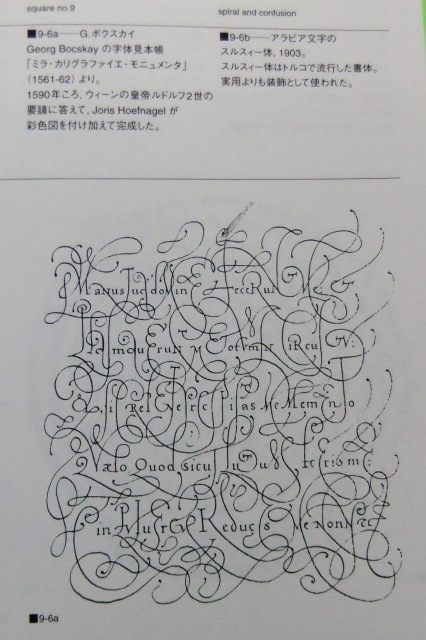 square no.9
spiral and confusion
■9-6a——G.ボクスカイ
Georg Bocskay の字体見本帳
「ミラ・カリグラファイエ・モニュメンタ」
(1561-62) より。
1590年ころ, ウィーンの皇帝ルドルフ2世の
要請に答えて, Joris Hoefnagel が
彩色図を付け加えて完成した。
■9-6b——アラビア文字の
スルスィー体, 1903。
スルスィー体はトルコで流行した書体。
実用よりも装飾として使われた。
Manus Tuæ doMinE FeceRunt Me, ET
ME ToTuM iN CiRcuiTV:
Me MeMenTo
Quod sicuT LuTuM me:
in ReduCES Me NonNE
■9-6a